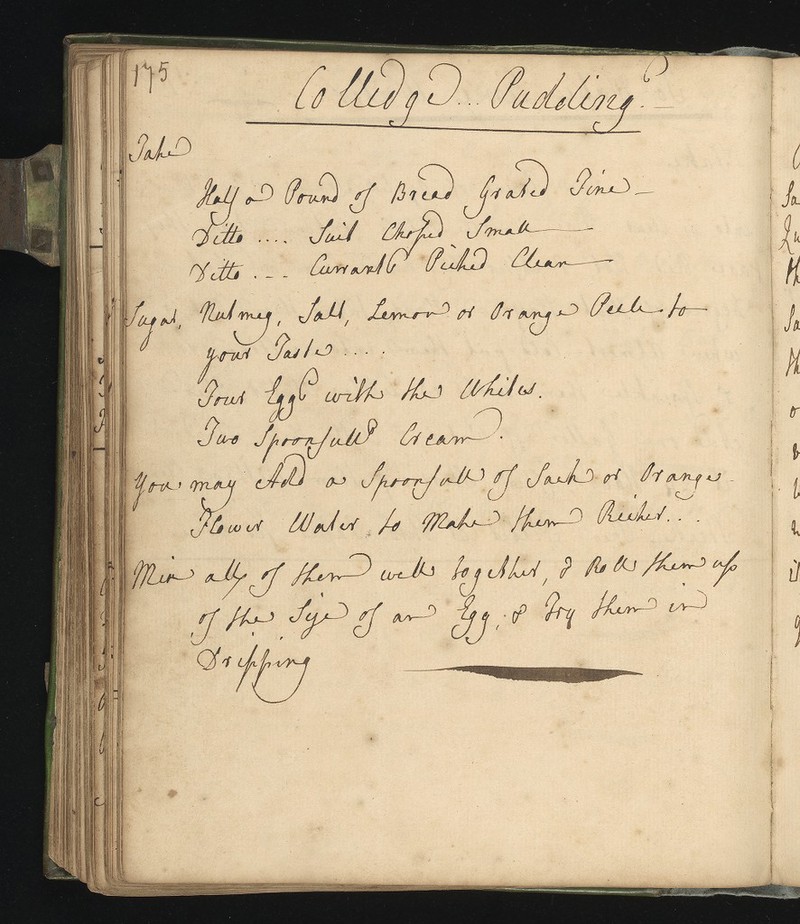 175
Colledge... Puddings.
Take
Half a Pound of Bread Grated Fine
Ditto .... Suit Choped Small
Ditto ... Currants Picked Clean
Sugar, Nutmeg, Salt, Lemon or Orange Peele to
your Taste ....
Four Eggs with the Whites.
Two Spoonfulls Cream.
You may Add a Spoonfull of Sack or Orange
Flower Water to Make them Richer...
Mix all of them well together, & Roll them up
of the Size of an Egg, & Fry them in
Dripping